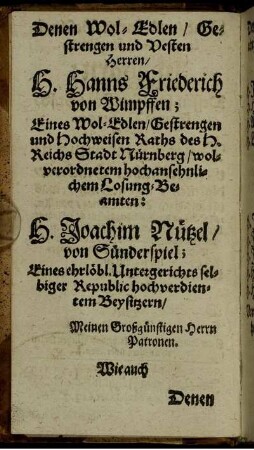 Denen Wol-Edlen / Ge-
strengen und Vesten
Herren /
H. Hanns Friederich
von Wimpffen;
Eines Wol-Edlen / Gestrengen
und Hochweisen Raths des H.
Reichs Stadt Nürnberg / wol-
verordnetem hochansehnli-
chem Losung-Be-
amten:
H. Joachim Nützel /
von Sünderspiel;
Eines ehrlöbl. Untergerichts sel-
biger Republic hochverdien-
tem Beysitzern /
Meinen Großgünstigen Herrn
Patronen.
Wie auch
Denen